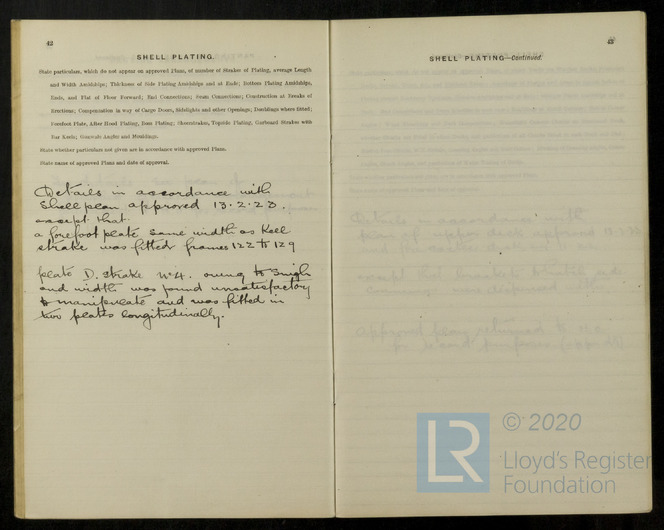 42
SHELL PLATING.
State particulars, which do not appear on approved Plans, of number of Strakes of Plating, average Length
and Width Amidships; Thickness of Side Plating Amidships and at Ends; Bottom Plating Amidships,
Ends, and Flat of Floor Forward; End Connections; Seam Connections; Construction at Breaks of
Erections; Compensation in way of Cargo Doors, Sidelights and other Openings; Doublings where fitted;
Forefoot Plate, After Hood Plating, Boss Plating; Sheerstrakes, Topside Plating, Garboard Strakes with
Bar Keels; Gunwale Angles and Mouldings.
State whether particulars not given are in accordance with approved Plans.
State name of approved Plans and date of approval.
Details in accordance with
Shell plan approved 13.2.23.
except that
a forefoot plate same width as Keel
strake was fitted frames 122 to 129
plate D. strake No 4. owing to
and width was found unsatisfactory
to manipulate and was fitted in
two plates longitudinally.
43
SHELL PLATING—Continued.
LR
© 2020
Lloyd's Register
Foundation